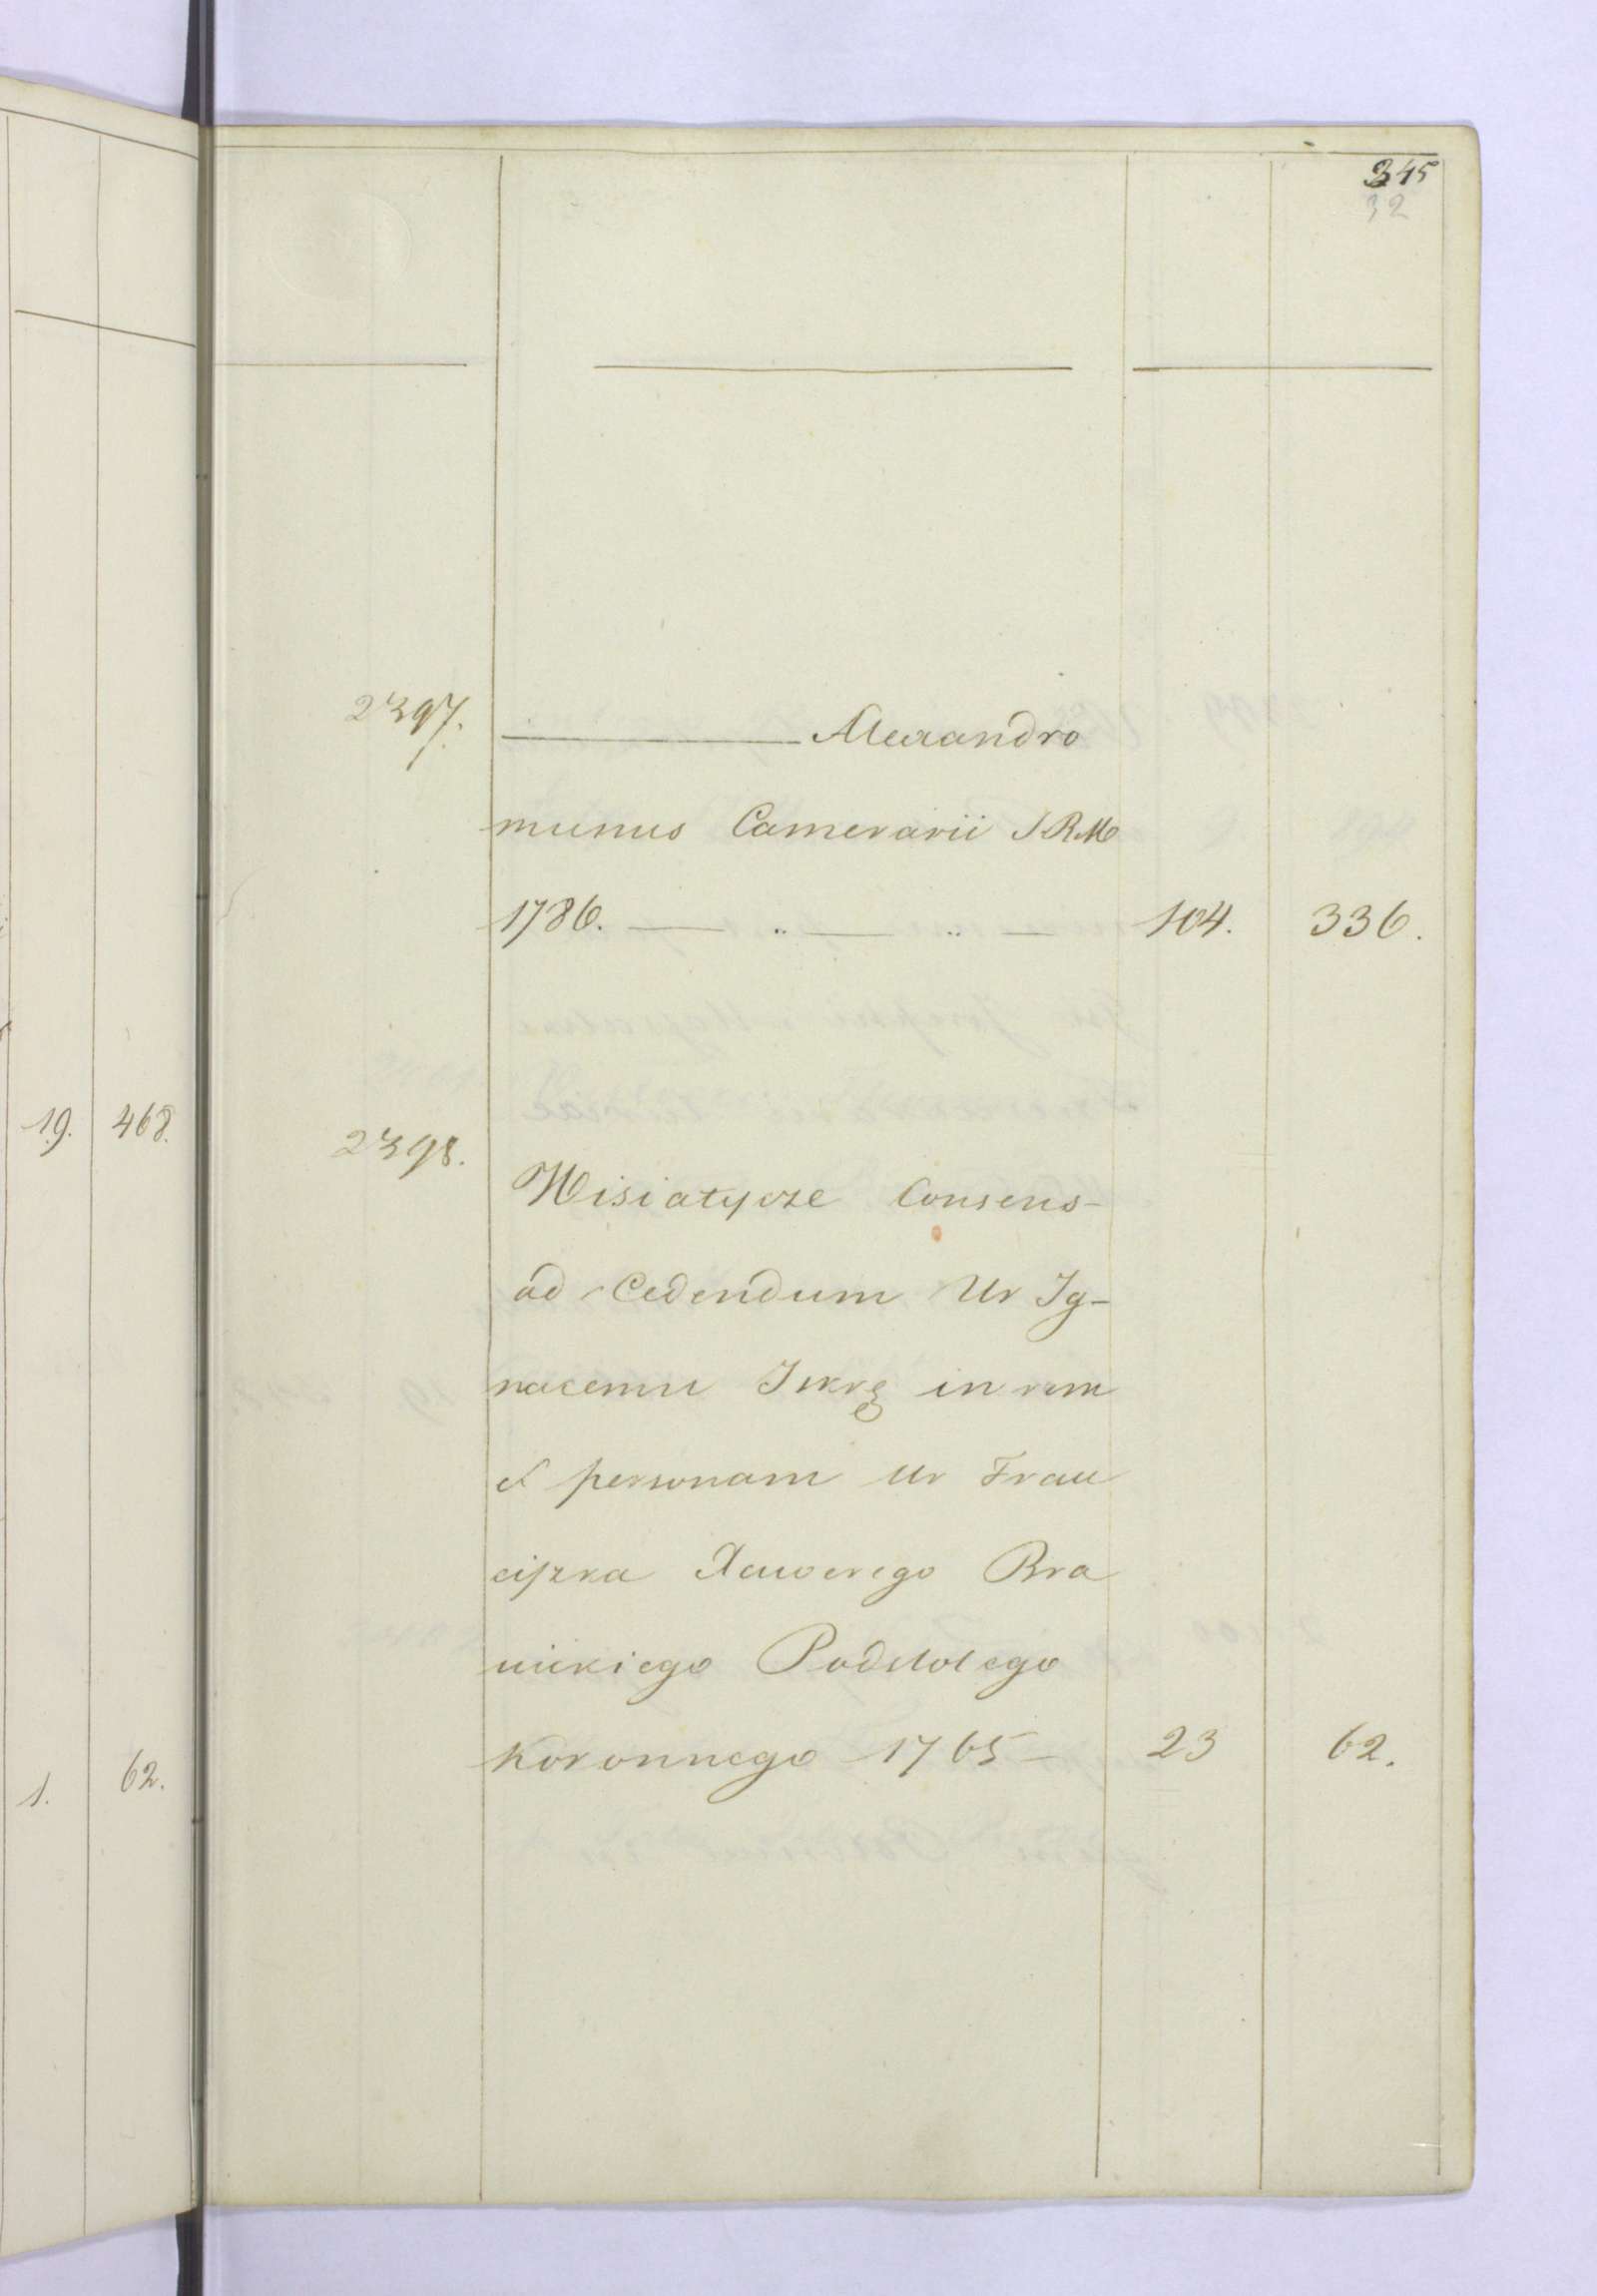 345
32
2397. ——— Alexandro
munus Camerarii SRM
1786. — " — " — 104. 336.
19. 468.
2398.
Wisiatycze Consens-
ad Cedendum Ur Ig-
nacemu Iskrę in rem
et personam Ur Fran
ciszka Xawerego Bra
nickiego Podstolego
Koronnego 1765 — 23 62.
1. 62.